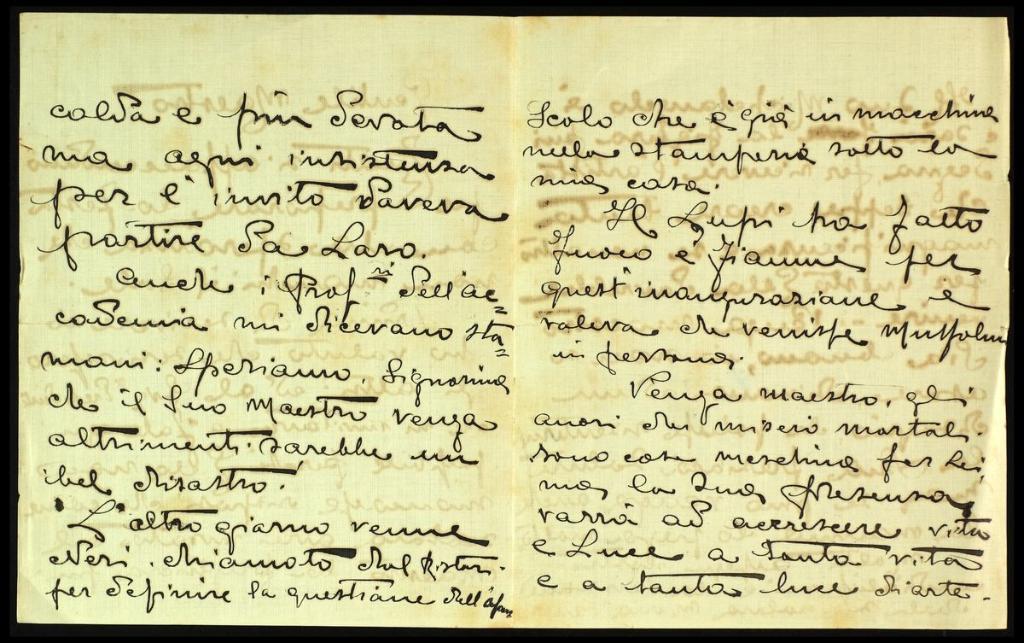 calda e più devota
ma ogni insistenza
per l'invito doveva
partire da Loro.
Anche i Prof.ri dell'ac=
cademia mi dicevano sta=
mani: Speriamo, Signorina
che il Suo Maestro venga
altrimenti sarebbe un
bel disastro!
L'altro giorno venne
Neri. chiamato dal Ristori.
per definire la questione dell'
Scolo che è già in macchina
nella stamperia sotto la
mia casa.
Il Lupi ha fatto
fuoco e fiamme per
quest'inaugurazione e
voleva che venisse Mussolini
in persona.
Venga maestro, gli
onori dei miseri mortali
sono cose meschine per Lei
ma la Sua presenza
varrà ad accrescere vita
e Luce a tanta vita
e a tanta luce d'arte.